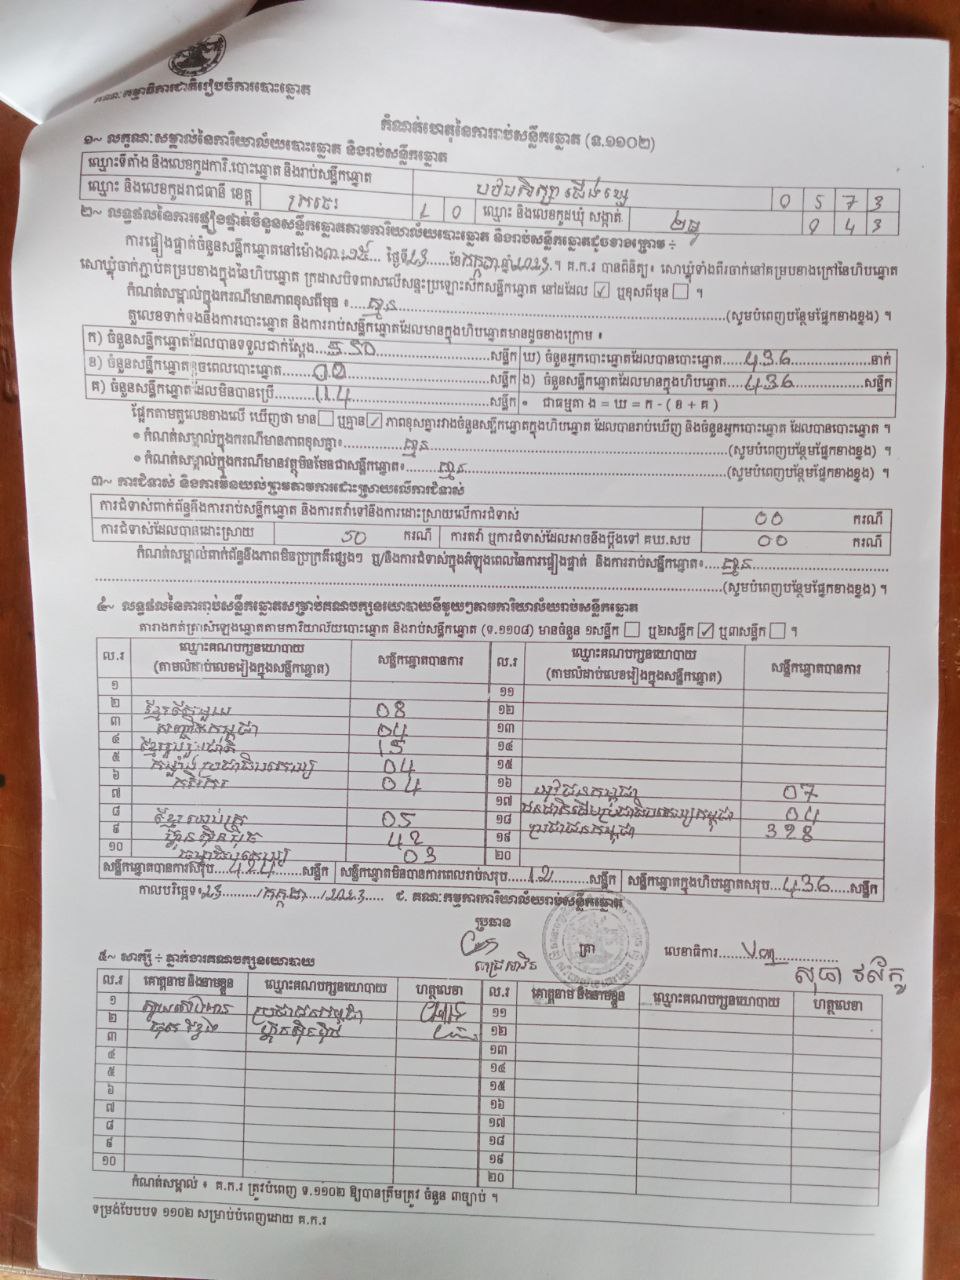 គណៈកម្មាធិការជាតិរៀបចំការបោះឆ្នោត
កំណត់ហេតុនៃការរាប់សន្លឹកឆ្នោត (ន.១១០២)
១~ លក្ខណៈសម្គាល់នៃការិយាល័យបោះឆ្នោត និងរាប់សន្លឹកឆ្នោត
ឈ្មោះទីតាំង និងលេខកូដការិ.បោះឆ្នោត និងរាប់សន្លឹកឆ្នោត
0 5 7 3
ឈ្មោះ និងលេខកូដរាជធានី ខេត្ត ក្រចេះ 1 0 ឈ្មោះ និងលេខកូដឃុំ សង្កាត់ 0 4 3
២~ លទ្ធផលនៃការផ្ទៀងផ្ទាត់ចំនួនសន្លឹកឆ្នោតតាមការិយាល័យបោះឆ្នោត និងរាប់សន្លឹកឆ្នោតដូចខាងក្រោម ÷
ការផ្ទៀងផ្ទាត់ចំនួនសន្លឹកឆ្នោតនៅម៉ោង ថ្ងៃទី២៣ ខែកក្កដា ឆ្នាំ២០២៣។ គ.ក.រ បានពិនិត្យ៖ សោឃ្លុំទាំងពីរចាក់នៅគម្របខាងក្រៅនៃហិបឆ្នោត
សោឃ្លុំចាក់ភ្ជាប់គម្របខាងក្នុងនៃហិបឆ្នោត ក្រដាសបិទពាសលើសន្ទះប្រឡោះសឹកសន្លឹកឆ្នោត នៅដដែល ✓ ឬខុសពីមុន ។
កំណត់សម្គាល់ក្នុងករណីមានភាពខុសពីមុន ៖ គ្មាន (សូមបំពេញបន្ថែមផ្នែកខាងខ្នង) ។
តួលេខទាក់ទងនឹងការបោះឆ្នោត និងការរាប់សន្លឹកឆ្នោតដែលមានក្នុងហិបឆ្នោតមានដូចខាងក្រោម ៖
ក) ចំនួនសន្លឹកឆ្នោតដែលបានទទួលជាក់ស្តែង 550 សន្លឹក ឃ) ចំនួនអ្នកបោះឆ្នោតដែលបានបោះឆ្នោត 436 នាក់
ខ) ចំនួនសន្លឹកឆ្នោតខូចពេលបោះឆ្នោត 00 សន្លឹក ង) ចំនួនសន្លឹកឆ្នោតដែលមានក្នុងហិបឆ្នោត 436 សន្លឹក
គ) ចំនួនសន្លឹកឆ្នោតដែលមិនបានប្រើ 114 សន្លឹក • ជាធម្មតា ង = ឃ = ក - ( ខ + គ )
ផ្អែកតាមតួលេខខាងលើ ឃើញថា មាន ឬគ្មាន ✓ ភាពខុសគ្នារវាងចំនួនសន្លឹកឆ្នោតក្នុងហិបឆ្នោត ដែលបានរាប់ឃើញ និងចំនួនអ្នកបោះឆ្នោត ដែលបានបោះឆ្នោត ។
• កំណត់សម្គាល់ក្នុងករណីមានភាពខុសគ្នា៖ គ្មាន (សូមបំពេញបន្ថែមផ្នែកខាងខ្នង) ។
• កំណត់សម្គាល់ក្នុងករណីមានវត្ថុមិនមែនជាសន្លឹកឆ្នោត៖ គ្មាន (សូមបំពេញបន្ថែមផ្នែកខាងខ្នង) ។
៣~ ការជំទាស់ និងការមិនយល់ព្រមតាមការដោះស្រាយលើការជំទាស់
ការជំទាស់ពាក់ព័ន្ធនឹងការរាប់សន្លឹកឆ្នោត និងការតវ៉ាទៅនឹងការដោះស្រាយលើការជំទាស់ 00 ករណី
ការជំទាស់ដែលបានដោះស្រាយ ករណី ការតវ៉ា ឬការជំទាស់ដែលអាចនឹងប្តឹងទៅ គឃ.សប 00 ករណី
កំណត់សម្គាល់ពាក់ព័ន្ធនឹងភាពមិនប្រក្រតីផ្សេងៗ ឬ/និងការជំទាស់ក្នុងអំឡុងពេលនៃការផ្ទៀងផ្ទាត់ និងការរាប់សន្លឹកឆ្នោត៖ គ្មាន
(សូមបំពេញបន្ថែមផ្នែកខាងខ្នង) ។
៤~ លទ្ធផលនៃការរាប់សន្លឹកឆ្នោតសម្រាប់គណបក្សនយោបាយនីមួយៗតាមការិយាល័យរាប់សន្លឹកឆ្នោត
តារាងកត់ត្រាសំឡេងឆ្នោតតាមការិយាល័យបោះឆ្នោត និងរាប់សន្លឹកឆ្នោត (ទ.១១០៨) មានចំនួន ១សន្លឹក ឬ២សន្លឹក ✓ ឬ៣សន្លឹក ។
ល.រ ឈ្មោះគណបក្សនយោបាយ (តាមលំដាប់លេខរៀងក្នុងសន្លឹកឆ្នោត) សន្លឹកឆ្នោតបានការ ល.រ ឈ្មោះគណបក្សនយោបាយ (តាមលំដាប់លេខរៀងក្នុងសន្លឹកឆ្នោត) សន្លឹកឆ្នោតបានការ
១ ១១
២ ខ្មែរតែមួយ 08 ១២
៣ 04 ១៣
៤ ខ្មែររួបរួមជាតិ 15 ១៤
៥ កម្លាំងប្រជាធិបតេយ្យ 04 ១៥
៦ កសិករ 04 ១៦ យុវជនកម្ពុជា 07
៧ ១៧ ជនជាតិដើមប្រជាធិបតេយ្យកម្ពុជា 04
៨ 05 ១៨ ប្រជាជនកម្ពុជា 328
៩ ហ្វ៊ុនស៊ិនប៉ិច 42 ១៩
១០ ធម្មាធិបតេយ្យ 03 ២០
សន្លឹកឆ្នោតបានការសរុប 424 សន្លឹក សន្លឹកឆ្នោតមិនបានការពេលរាប់សរុប 12 សន្លឹក សន្លឹកឆ្នោតក្នុងហិបឆ្នោតសរុប 436 សន្លឹក
កាលបរិច្ឆេទ ២៣ / កក្កដា / ២០២៣ ជ. គណៈកម្មការការិយាល័យរាប់សន្លឹកឆ្នោត
ប្រធាន
ត្រា លេខាធិការ
៥~ សាក្សី ÷ ភ្នាក់ងារគណបក្សនយោបាយ
ល.រ គោត្តនាម និងនាមខ្លួន ឈ្មោះគណបក្សនយោបាយ ហត្ថលេខា ល.រ គោត្តនាម និងនាមខ្លួន ឈ្មោះគណបក្សនយោបាយ ហត្ថលេខា
១ ប្រជាជនកម្ពុជា ១១
២ ហ្វ៊ុនស៊ិនប៉ិច ១២
៣ ១៣
៤ ១៤
៥ ១៥
៦ ១៦
៧ ១៧
៨ ១៨
៩ ១៩
១០ ២០
កំណត់សម្គាល់ ៖ គ.ក.រ ត្រូវបំពេញ ទ.១១០២ ឱ្យបានត្រឹមត្រូវ ចំនួន ៣ច្បាប់ ។
ទម្រង់បែបបទ ១១០២ សម្រាប់បំពេញដោយ គ.ក.រ